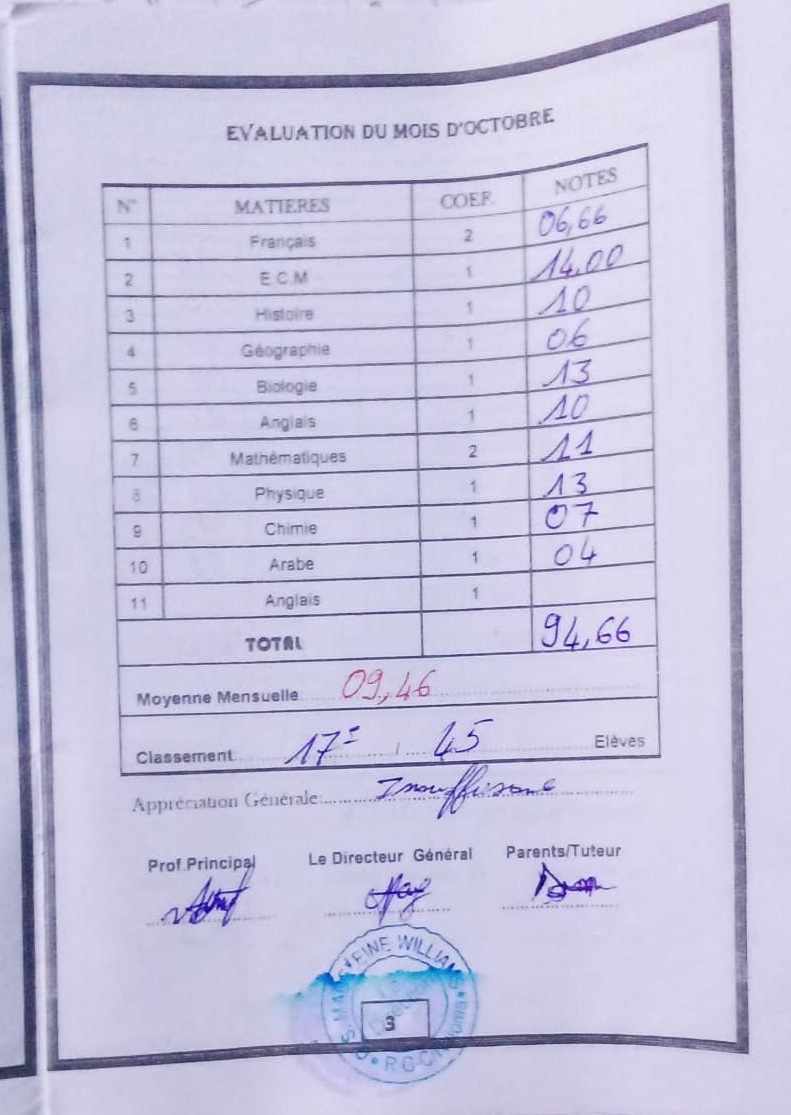 EVALUATION DU MOIS D'OCTOBRE
N° MATIERES COEF. NOTES
1 Français 2 06,66
2 E.C.M 1 14,00
3 Histoire 1 10
4 Géographie 1 06
5 Biologie 1 13
6 Anglais 1 10
7 Mathématiques 2 11
8 Physique 1 13
9 Chimie 1 07
10 Arabe 1 04
11 Anglais 1
TOTAL 94,66
Moyenne Mensuelle 09,46
Classement 17e / 45 Elèves
Appréciation Générale:
Prof.Principal Le Directeur Général Parents/Tuteur
EINE WILLIAM
3